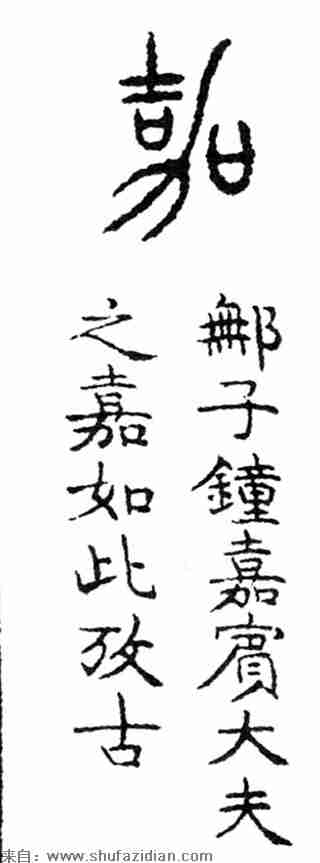 嘉
鄦子鐘嘉賓大夫
之嘉如此攷古
来自：www.shufazidian.com